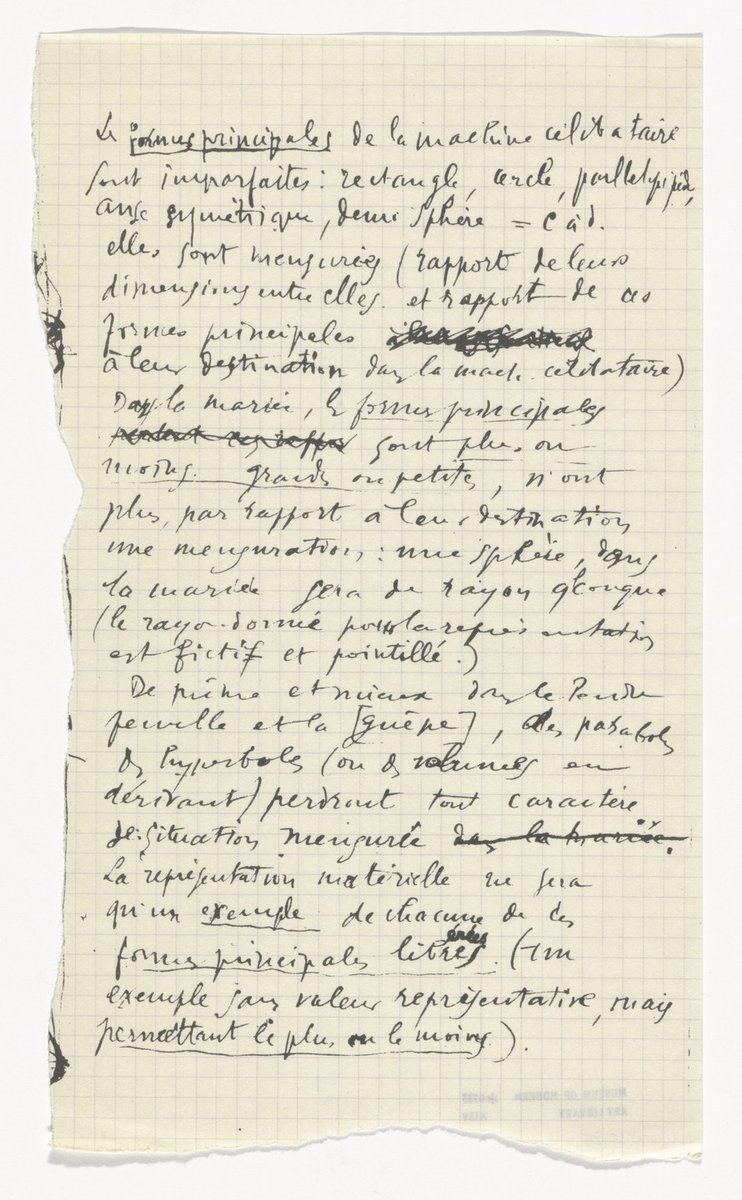 Les formes principales de la machine célibataire
sont imparfaites : rectangle, cercle, parallélépipède,
anse symétrique, demi sphère = c à d.
elles sont mensurées (rapport de leurs
dimensions entre elles. et rapport de ces
formes principales
à leur destination dans la mach. célibataire)
Dans la mariée, les formes principales
sont plus ou
moins grandes ou petites, n'ont
plus, par rapport à leur destination
une mensuration : une sphère, dans
la mariée sera de rayon qlconque
(le rayon donné pour la représentation
est fictif et pointillé.)
De même et mieux dans le Pendu
femelle et la [guêpe], des paraboles
des hyperboles (ou des volumes en
dérivant) perdront tout caractère
de situation mensurée dans la mariée.
La représentation matérielle ne sera
qu'un exemple de chacune de ces
formes principales libres. (un
exemple sans valeur représentative, mais
permettant le plus ou le moins).
MUSEUM OF MODERN
ART LIBRARY